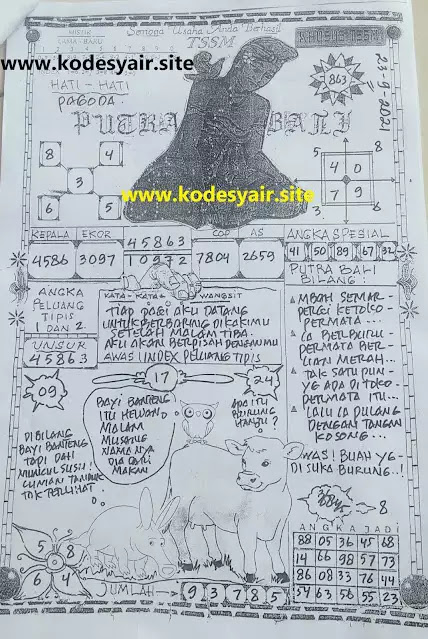 MISTIK
Semoga Usaha Anda Berhasil
LAMA - BARU
TSSM
www.kodesyair.site
HATI - HATI
PAGODA.
863
23-9-2021
PUTRA BALI
8 4
3
6 5
5 8
4 0
7 9
3
www.kodesyair.site
KEPALA EKOR
45863
COP AS
ANGKA SPESIAL
4586 3097
10972
7804 2659
41 50 89 67 32
ANGKA
PELUANG
TIPIS
1 DAN 2
UNSUR
45863
KATA - KATA WANGSIT
TIAP PAGI AKU DATANG
UNTUK BERBARING DI KAKIMU
SETELAH MALAM TIBA
AKU AKAN BERPISAH DENGANMU
AWAS! INDEX PELUANG TIPIS
PUTRA BALI
BILANG:
MBAH SEMAR
PERGI KETOKO
PERMATA
IA BERBURU
PERMATA BER
LIAN MERAH
TAK SATU PUN
YE ADA DI TOKO
PERMATA ITU
LALU IA PULANG
DENGAN TANGAN
KOSONG
AWAS! BUAH YG
DI SUKA BURUNG..!
09
17
24
BAYI BANTENG
ITU HEWAN
MALAM
MUSANG
NAMANYA
DIA CARI
MAKAN
APA ITU
BURUNG
HANTU?
DI BILANG
BAYI BANTENG
TAPI DAH
MUNCUL SUSU!
CUMAN TANDUK
TAK TERLIHAT
8
5 8
0
6 4
JUMLAH
9 3 7 8 5
ANGKA JADI
88 05 36 45 68
14 66 98 57 73
86 08 33 76 44
54 63 56 55 23